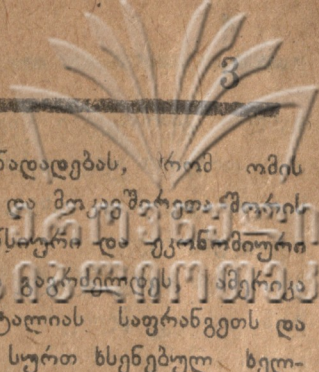 3
ნადადებას, რომ ომის
და მოკავშირეთა შორის
ნსიური და ეკონომიური
გაგრძელდეს, ამერიკა
ტალიას საფრანგეთს და
სურთ ხსენებულ ხელ-